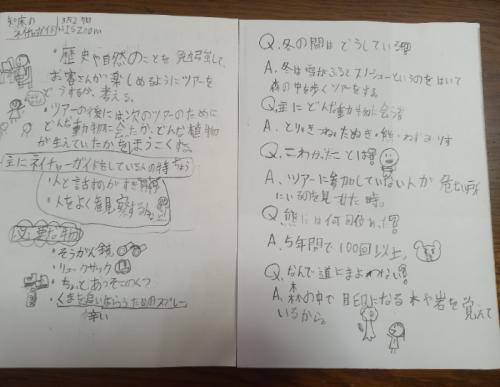 知床の
ネイチャーガイド
3月2
inZoom
・歴史や自然のことを勉強して、
お客さんが楽しめるようにツアーを
どうするか、考える。
・ツアーの後には次のツアーのために
どんな動物に会たか、どんな植物
が生えていたかを
主にネイチャーガイドをしている人の特ちょう
・人と話すのがすき
・人をよく観察する
必要な物
・そうがん鏡
・リュックサック
・ちょっとあつぞこのくつ
・くまを追いはらうためのスプレー
辛い
Q.冬の間はどうしている?
A.冬は雪がふるとスノーシューというのをはいて
森の中を歩くツアーをする。
Q.主にどんな動物に会う?
A.とり・きつね・たぬき・熊・ねずみ・りす
Q.こわかったことは?
A.ツアーに参加していない人が危ない所
にいるのを見せた時。
Q.熊には何回会
A.5年間で100回以上。
Q.なんで道にまよわない?
A.森の中で目印になる木や岩を覚えて
いるから。